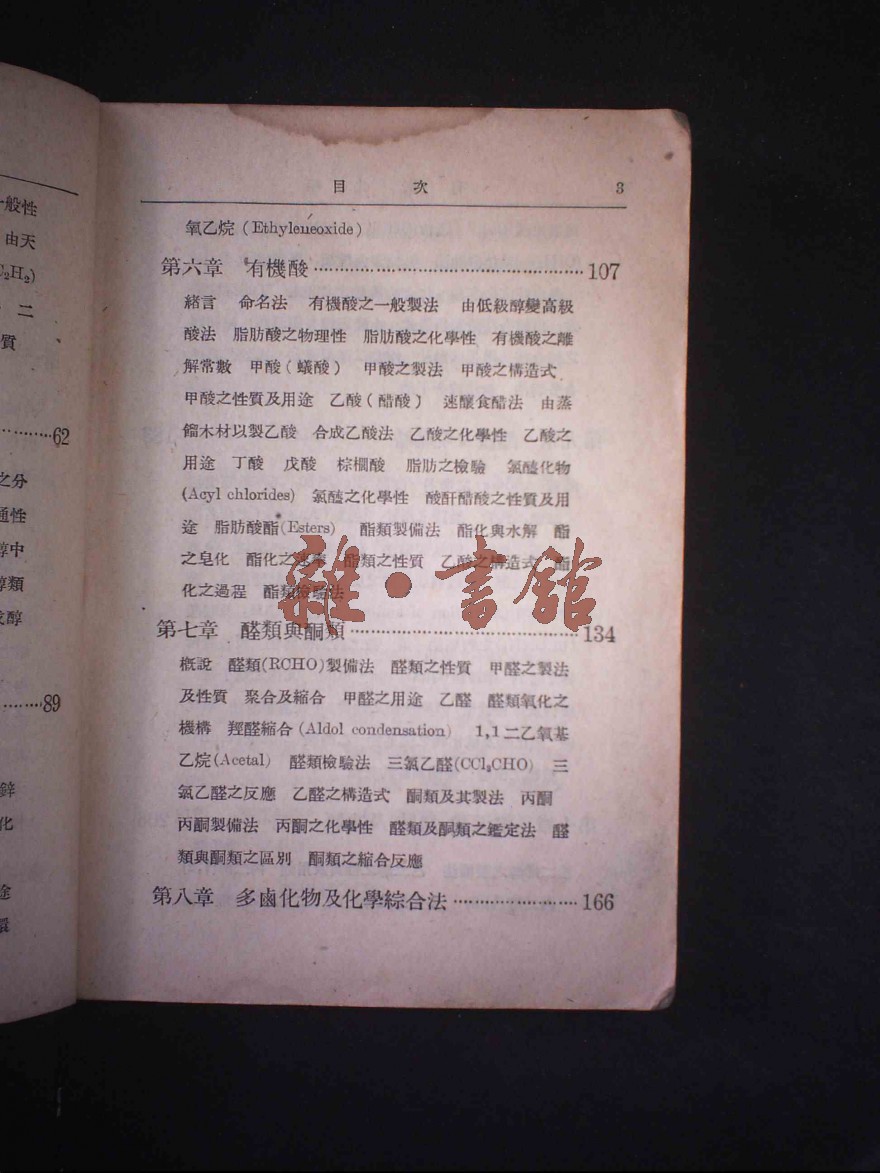 般性
由天
C₂H₂)
二
質
62
之分
通性
醇中
醇類
醇
89
鋅
化
途
目 次 3
氧乙烷 (Ethyleneoxide)
第六章 有機酸 107
緒言 命名法 有機酸之一般製法 由低級醇變高級
酸法 脂肪酸之物理性 脂肪酸之化學性 有機酸之離
解常數 甲酸(蟻酸) 甲酸之製法 甲酸之構造式
甲酸之性質及用途 乙酸(醋酸) 速釀食醋法 由蒸
餾木材以製乙酸 合成乙酸法 乙酸之化學性 乙酸之
用途 丁酸 戊酸 棕櫚酸 脂肪之檢驗 氯醯化物
(Acyl chlorides) 氯醯之化學性 酸酐醋酸之性質及用
途 脂肪酸酯(Esters) 酯類製備法 酯化與水解 酯
之皂化 酯化之速率 酯類之性質 乙酸之構造式 酯
化之過程 酯類檢驗法
雜·書館
第七章 醛類與酮類 134
概說 醛類(RCHO)製備法 醛類之性質 甲醛之製法
及性質 聚合及縮合 甲醛之用途 乙醛 醛類氧化之
機構 羥醛縮合(Aldol condensation) 1,1二乙氧基
乙烷(Acetal) 醛類檢驗法 三氯乙醛(CCl₃CHO) 三
氯乙醛之反應 乙醛之構造式 酮類及其製法 丙酮
丙酮製備法 丙酮之化學性 醛類及酮類之鑑定法 醛
類與酮類之區別 酮類之縮合反應
第八章 多鹵化物及化學綜合法 166